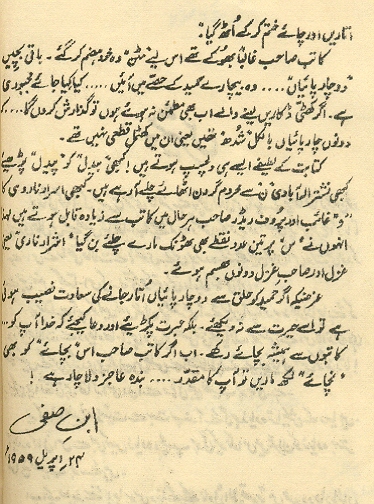 اتاریں اور چائے ختم کر کے اُٹھ گیا"
کاتب صاحب غالباً بھُوکے تھے اس لیے "مٹن" وہ خود ہضم کر گئے۔ باقی بچیں
"دو چارپائیاں".... وہ بیچارے حمید کے حصّے میں آئیں ..... کیا کیا جائے مجبوری
ہے۔ اگر کھٹی ڈکاریں لینے والے اب بھی مطمئن نہ ہوئے ہوں تو گذارش کروں گا.... کہ
دونوں چارپائیاں بالکل "شُدھ" تھیں یعنی ان میں کھٹمل قطعی نہیں تھے۔
کتابت کے لطیفے ایسے ہی دلچسپ ہوتے ہیں! کبھی "بیدل" کو "پیدل" پڑھیے
کبھی نشتر الہ آبادی "ن" سے محروم گردن اٹھائے چلے آرہے ہیں۔ کبھی اسرار ناروی کا
"و" غائب اور پروف ریڈر صاحب ہر حال میں کاتب سے زیادہ قابل ہوتے ہیں لہٰذا
انھوں نے "س" پر تین عدد نقطے بھی ٹھونک مارے چلئے بن گیا "اشرار ناری" یعنی
غزل اور صاحبِ غزل دونوں بھسم ہوئے۔
غرضیکہ اگر حمید کو حلق سے دو چارپائیاں اُتار جانے کی سعادت نصیب ہوئی
ہے تو اسے حیرت سے نہ دیکھئے۔ بلکہ عبرت پکڑیئے اور دعا کیجئے کہ خدا آپ کو...
کاتبوں سے ہمیشہ بچائے رکھے۔ اب اگر کاتب صاحب اس "بچائے" کو بھی
"نچائے" لکھ ماریں تو آپ کا مقدّر .... بندہ عاجز و لاچار ہے !
ابنِ صفی
۲۴ اپریل ۱۹۵۹ء